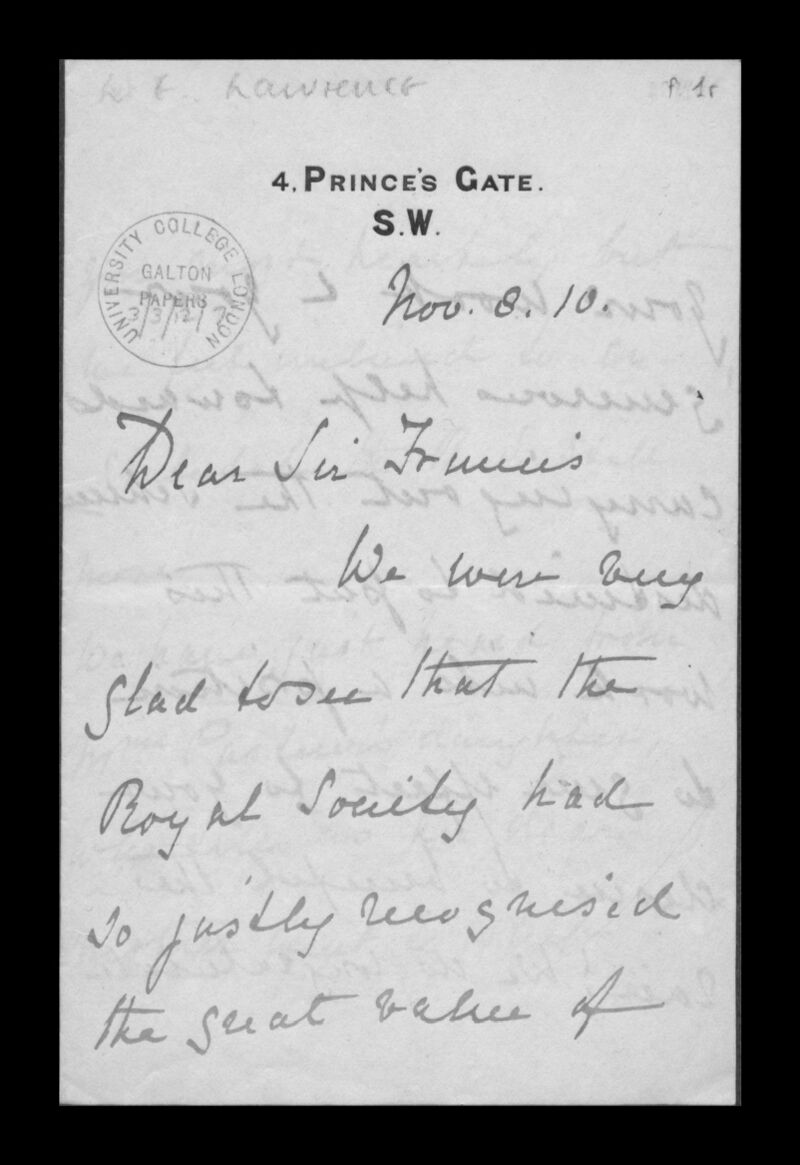 Lawrence
P 1r
4, PRINCE'S GATE.
S.W.
UNIVERSITY COLLEGE LONDON
GALTON
PAPERS
Nov. 8. 10.
Dear Sir Francis
We were very
glad to see that the
Royal Society had
so justly recognised
the great value of